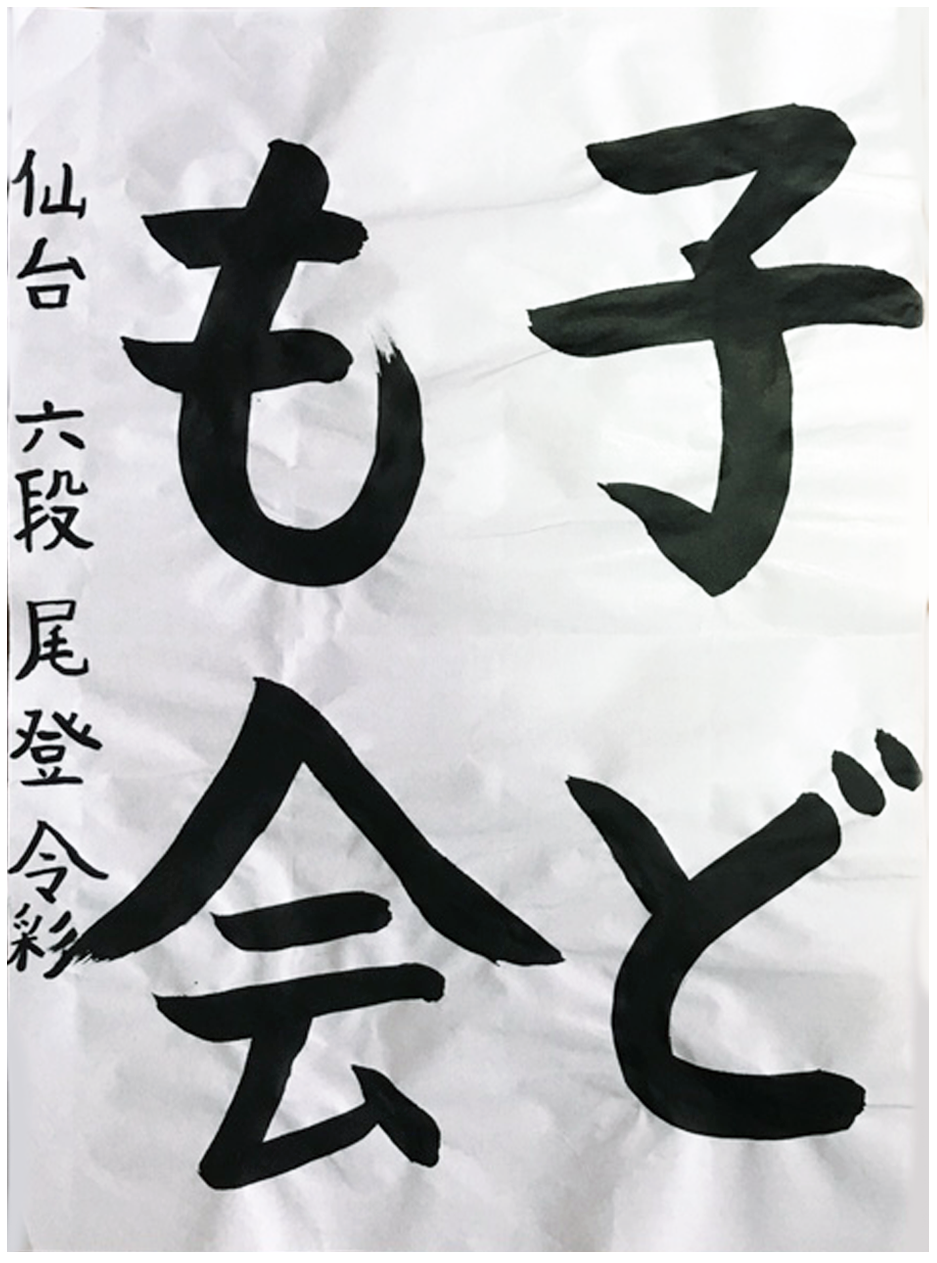 子ど
も会
仙台 六段 尾登 令彩